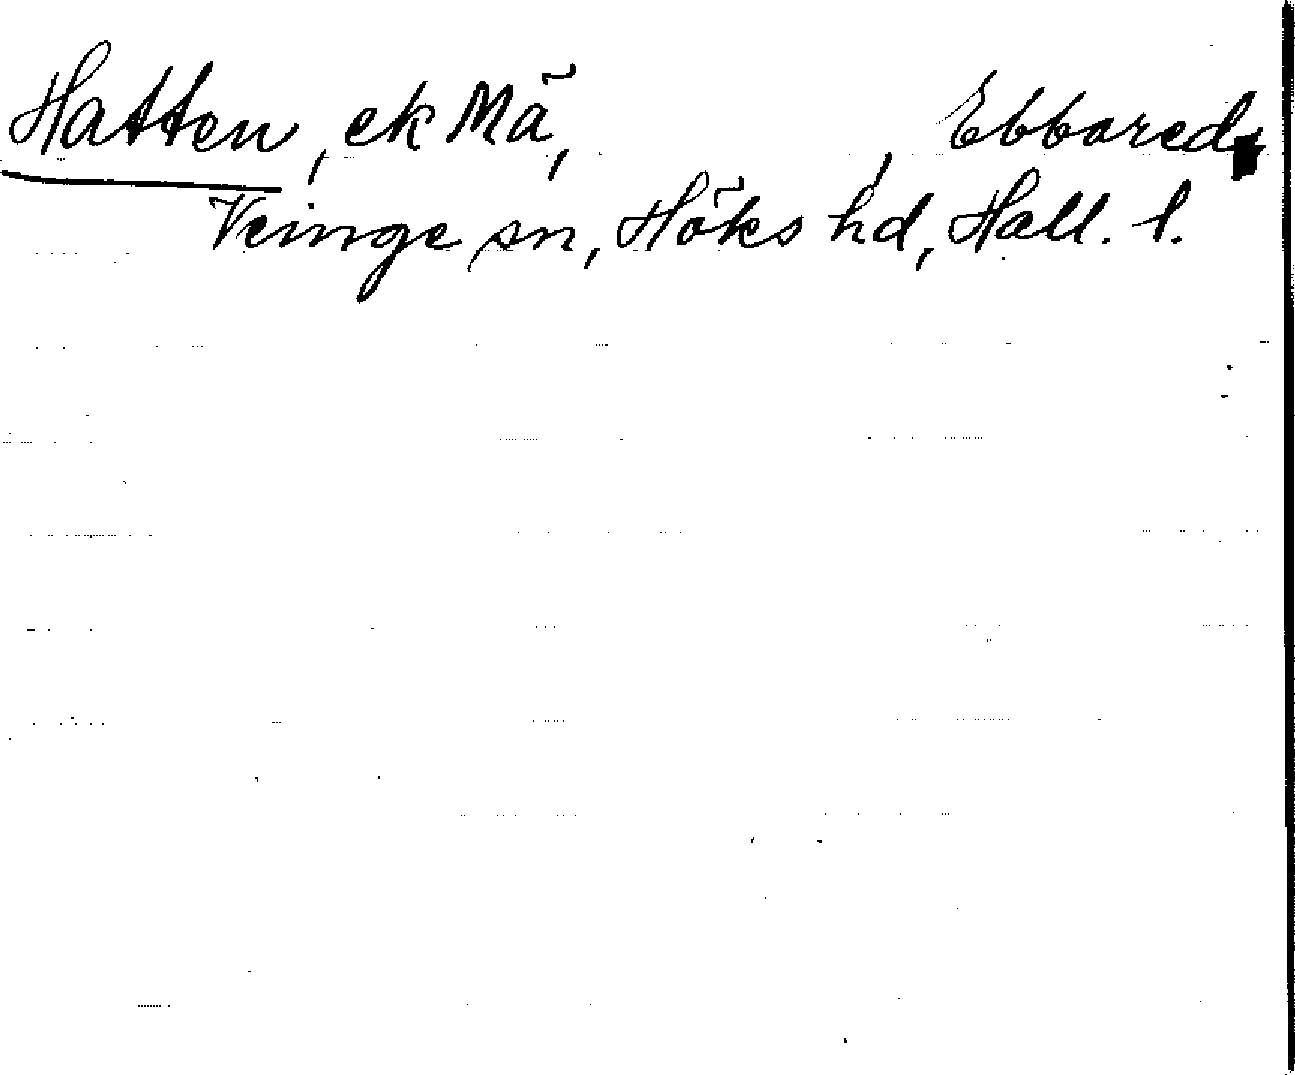 Hatten, ek Mä, , Ebbared,
Veinge sn, Höks hd, Hall. l.